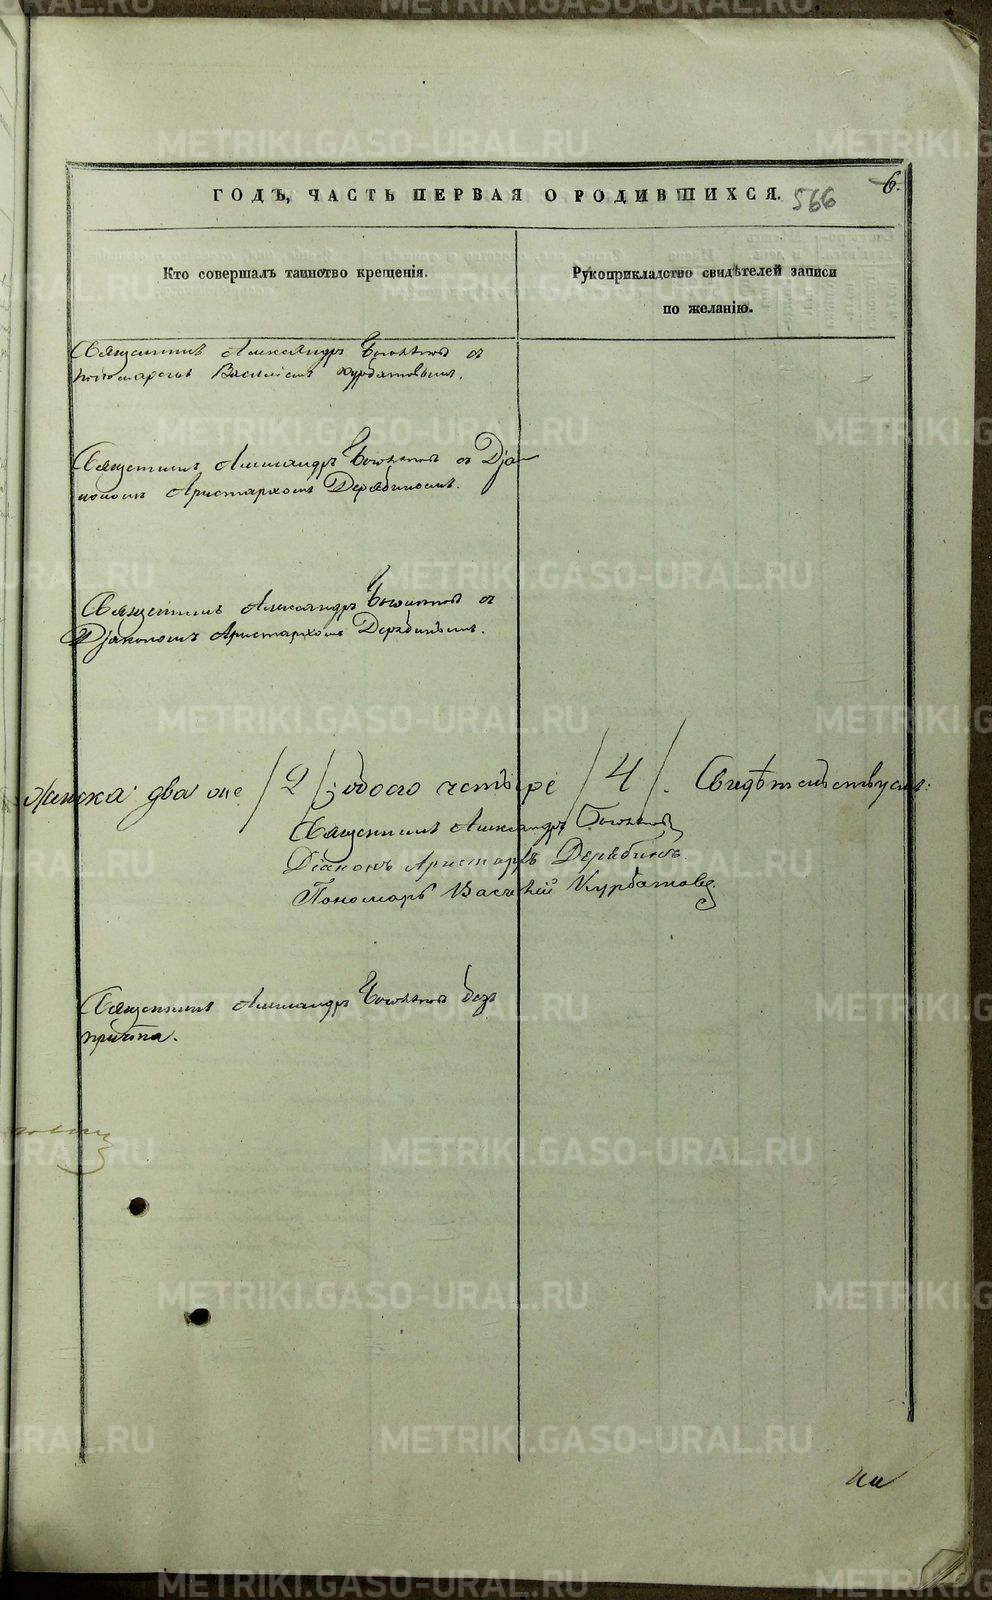 ГОДЪ, ЧАСТЬ ПЕРВАЯ О РОДИВШИХСЯ. 566 6.
Кто совершалъ таинство крещенія.
Рукоприкладство свидѣтелей записи
по желанію.
Священникъ Александръ съ
пономаремъ Василіемъ Курбатовымъ.
Священникъ Александръ съ Діа-
кономъ Аристархомъ Дерябинымъ.
Священникъ Александръ съ
Діакономъ Аристархомъ Дерябинымъ.
Женска два /2/; обоего четыре /4/. Свидѣтельствуемъ:
Священникъ Александръ
Діаконъ Аристархъ Дерябинъ.
Пономарь Василій Курбатовъ
Священникъ Александръ безъ
причта.
METRIKI.GASO-URAL.RU